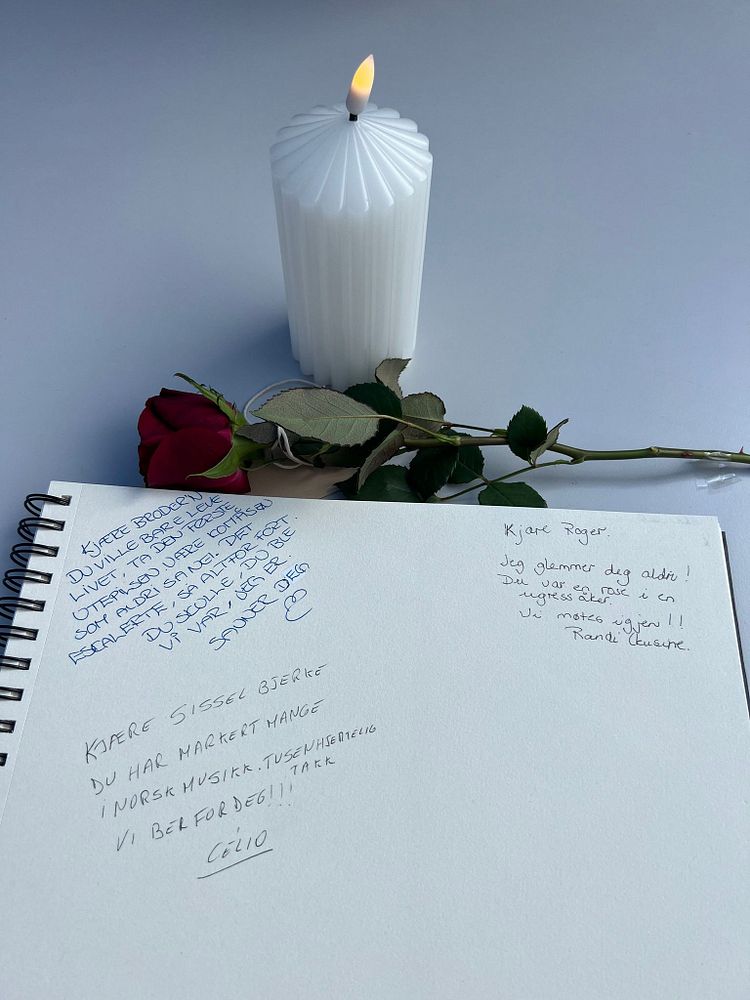 KJÆRE BRODER'N
DU VILLE BARE LEVE
LIVET, TA DEN FØRSTE
UTEPILSEN VÆRE KOMPISEN
SOM ALDRI SA NEI. DET
ESKALERTE, SÅ ALTFOR FORT.
DU SKULLE, DU BLE
VI VAR, JEG ER.
SAVNER DEG
KJÆRE SISSEL BJERKE
DU HAR MARKERT MANGE
I NORSK MUSIKK. TUSENHJERTELIG
TAKK
VI BER FOR DEG!!!
CÉLIO
Kjære Roger.
Jeg glemmer deg aldri!
Du var en rose i en
ugressåker.
Vi møtes igjen!!
Randi